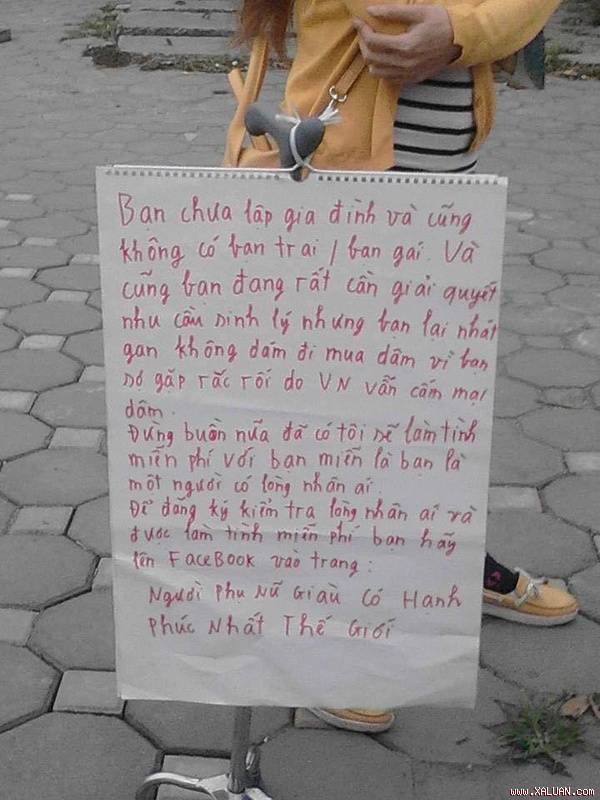 Bạn chưa lập gia đình và cũng
không có bạn trai / bạn gái. Và
cũng bạn đang rất cần giải quyết
nhu cầu sinh lý nhưng bạn lại nhát
gan không dám đi mua dâm vì bạn
sợ gặp rắc rối do VN vẫn cấm mại
dâm.
Đừng buồn nữa đã có tôi sẽ làm tình
miễn phí với bạn miễn là bạn là
một người có lòng nhân ái.
Để đăng ký kiểm tra lòng nhân ái và
được làm tình miễn phí bạn hãy
lên FaceBook vào trang:
Người Phụ Nữ Giàu Có Hạnh
Phúc Nhất Thế Giới
www.XALUAN.com